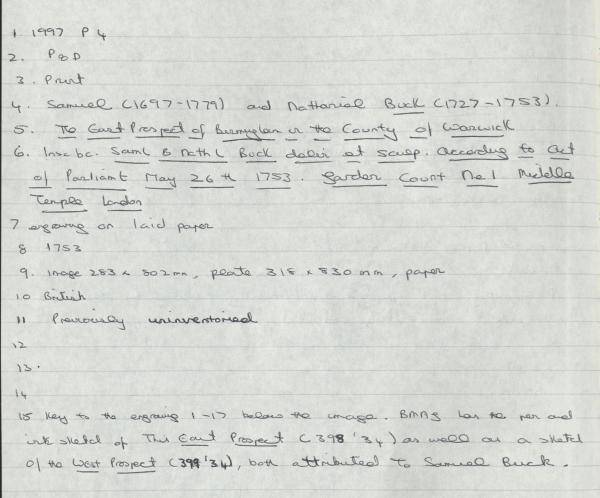 1 1997 P 4
2. P & D
3. Print
4. Samuel (1697-1779) and Nathaniel Buck (1727-1753).
5. The East Prospect of Burmyglam in the County of Warwick
6. Insc bc. Saml & Nathl Buck delin et sculp. According to Act
of Parliamt May 26th 1753. Garden Court No.1 Middle
Temple London
7 engraving on laid paper
8 1753
9. Image 283 x 802 mm, plate 318 x 830 mm, paper
10 British
11 Previously uninventoried
12
13.
14
15 Key to the engraving 1-17 below the image. BMAG has the pen and
ink sketch of This East Prospect (398'34) as well as a sketch
of the West Prospect (399'34), both attributed to Samuel Buck.